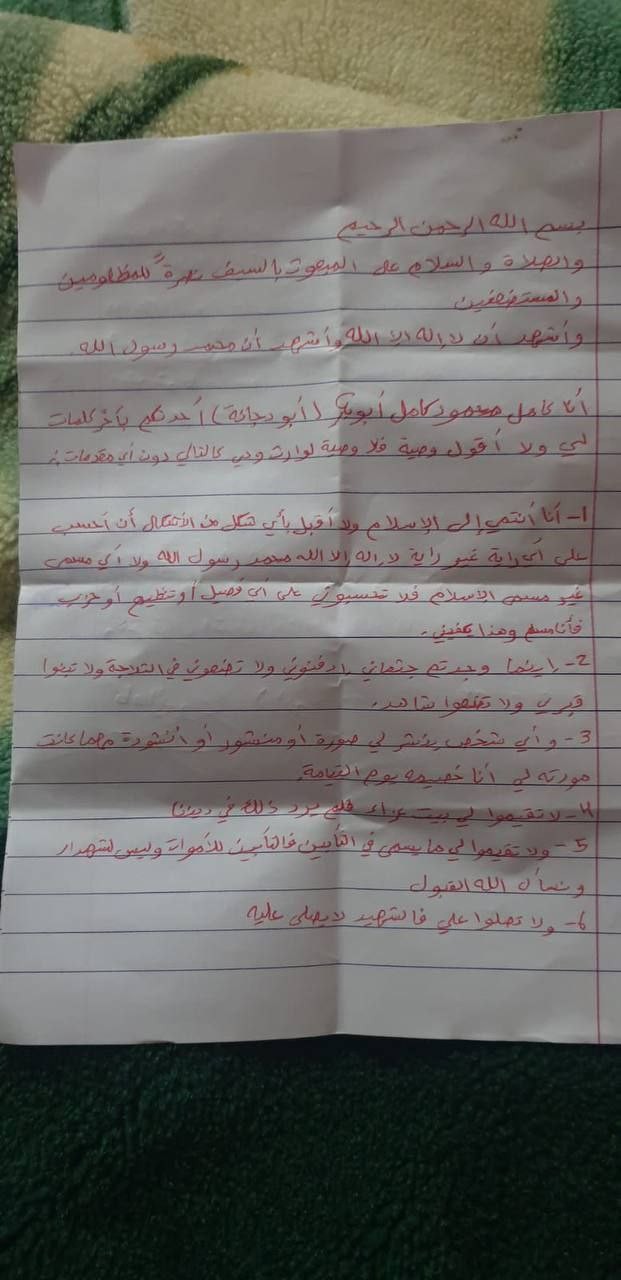 بسم الله الرحمن الرحيم
والصلاة والسلام على المبعوث بالسيف نصرةً للمظلومين
والمستضعفين
وأشهد أن لا إله إلا الله وأشهد أن محمد رسول الله
أنا كامل محمود كامل أبوبكر (أبو دجانة) أحدثكم بآخر كلمات
لي ولا أقول وصية فلا وصية لوارث وهي كالتالي دون أي مقدمات :
1- أنا أنتمي إلى الإسلام ولا أقبل بأي شكل من الأشكال أن أحسب
على أي راية غير راية لا إله إلا الله محمد رسول الله ولا أي مسمى
غير مسمى الإسلام فلا تحسبوني على أي فصيل أو تنظيم أو حزب
فأنا مسلم وهذا يكفيني.
2- أينما وجدتم جثماني إدفنوني ولا تضعوني في الثلاجة ولا تبنوا
قبري ولا تضعوا شاهد.
3- وأي شخص ينشر لي صورة أو منشور أو أنشودة مهما كانت
مودته لي أنا خصيمه يوم القيامة.
4- لا تقيموا لي بيت عزاء فلم يرد ذلك في ديننا
5- ولا تقيموا لي ما يسمى في التأبين فالتأبين للأموات وليس للشهداء
ونسأل الله القبول
6- ولا تصلوا علي فالشهيد لا يصلى عليه